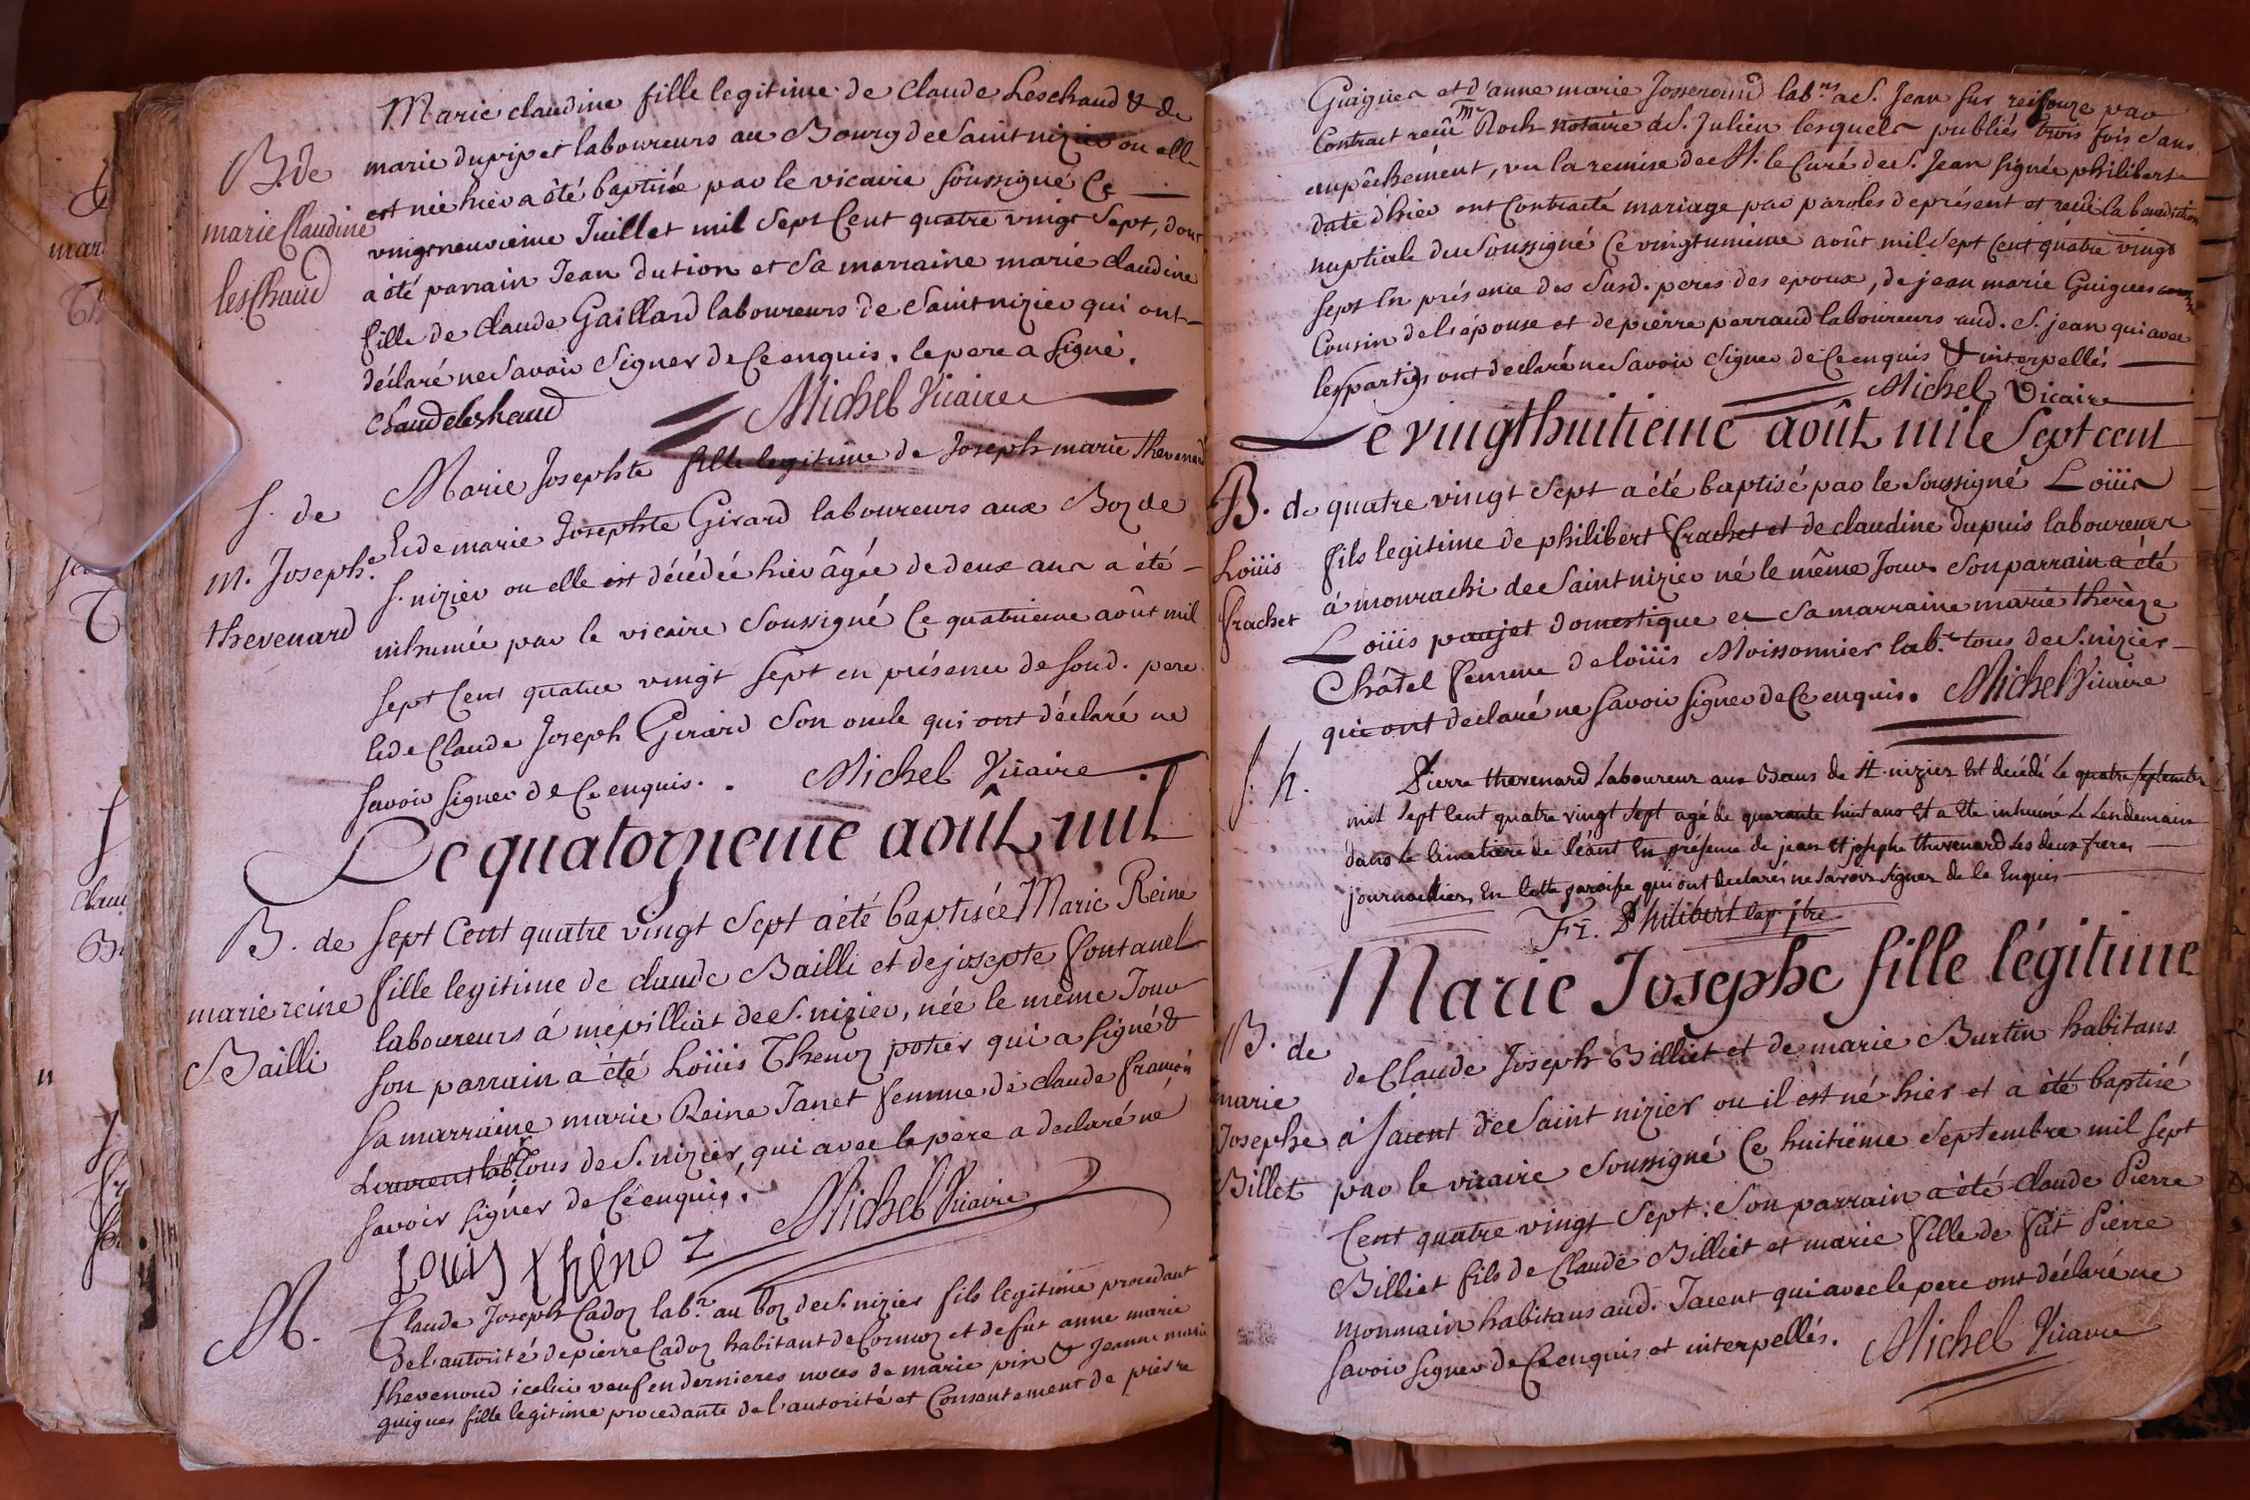 B. de
marie Claudine
leschaud
Marie claudine fille legitime de Claude Leschaud & de
marie dupip et laboureurs au Bourg de Saint nizier ou elle
est née hier a été baptisée par le vicaire soussigné Ce
vingt neuvieme Juillet mil sept Cent quatre vingt sept, dont
a été parrain Jean dution et sa marraine marie claudine
fille de claude Gaillard laboureurs de Saint nizier qui ont
déclaré ne savoir signer de Ce enquis. le pere a signé.
Michel Vicaire
S. de
m. Josephe
thevenard
Marie Josephte fille legitime de Joseph marie thevenard
& de marie Josephte Girard laboureurs aux Boz de
S. nizier ou elle est décédée hier âgée de deux ans a été
inhumée par le vicaire soussigné Ce quatrieme août mil
sept Cent quatre vingt sept en présence de son d. pere
& de Claude Joseph Girard son oncle qui ont déclaré ne
savoir signer de Ce enquis. Michel Vicaire
Le quatorzieme août mil
B. de
marie reine
Bailli
sept Cent quatre vingt sept a été baptisée Marie Reine
fille legitime de claude Bailli et de josepte fontanel
laboureurs á mépilliat de S. nizier, née le même Jour
son parrain a été Loüis Thenoz potier qui a signé &
sa marraine marie Reine Janet femme de claude françois
Laurent lab. tous de S. nizier, qui avec le pere a declaré ne
savoir signer de Ce enquis. Michel Vicaire
Louis thénoz
M.
Claude Joseph Cadoz lab.r au boz de S. nizier fils legitime procedant
de l'autorité de pierre Cadoz habitant de Cormoz et de fut anne marie
thevenoud icelui veuf en dernieres noces de marie pin & Jeanne marie
guigues fille legitime procedante de l'autorité et Consentement de pierre
Guigues et d'anne marie Josserand lab.rs a S. Jean sur reisouze par
Contract reçu m.e Roch notaire a S. Julien lesquels publiés trois fois sans
empêchement, vu la remise de M. le Curé de S. Jean signée philibert
date d'hier ont Contracté mariage par paroles de présent et recu la benediction
nuptiale du soussigné Ce vingtunieme août mil sept Cent quatre vingt
sept En présence des susd. peres des epoux, de jean marie Guigues
Cousin de l'épouse et de pierre perraud laboureurs aud. S. jean qui avec
les partis ont declaré ne savoir signer de Ce enquis & interpellés
Michel Vicaire
Le vingthuitieme août mil Sept cent
B. de
Loüis
frachet
quatre vingt sept a été baptisé par le soussigné Loüis
fils legitime de philibert frachet et de claudine dupuis laboureurs
á monrachi de Saint nizier né le même Jour. son parrain a été
Loüis paujet domestique et sa marraine marie thérèze
Châtel femme de loüis Moissonnier lab.r tous de S. nizier
qui ont declaré ne savoir signer de Ce enquis. Michel Vicaire
S. h.
Pierre thevenard laboureur aux Baus de St. nizier Est decédé Le quatre septembre
mil sept Cent quatre vingt sept agé de quarante huit ans Et a Ete inhumé Le Lendemain
dans Le Cimetiere de Céant En présence de jean Et joseph thevenard Les deux freres
journalliers En Cette paroisse qui ont declarés ne savoir signer de Ce Enquis
Fr. Philibert cap. ptre
Marie Josephe fille légitime
B. de
marie
Josephe
Billet
de Claude Joseph Billiet et de marie Burtin habitans
á Jaient de Saint nizier ou il est né hier et a été baptisé
par le vicaire soussigné Ce huitiême septembre mil sept
Cent quatre vingt sept: son parrain a été claude Pierre
Billiet fils de Claude Billiet et marie fille de fut Pierre
monmain habitans aud. Jaient qui avec le pere ont déclaré ne
savoir signer de Ce enquis et interpellés. Michel Vicaire